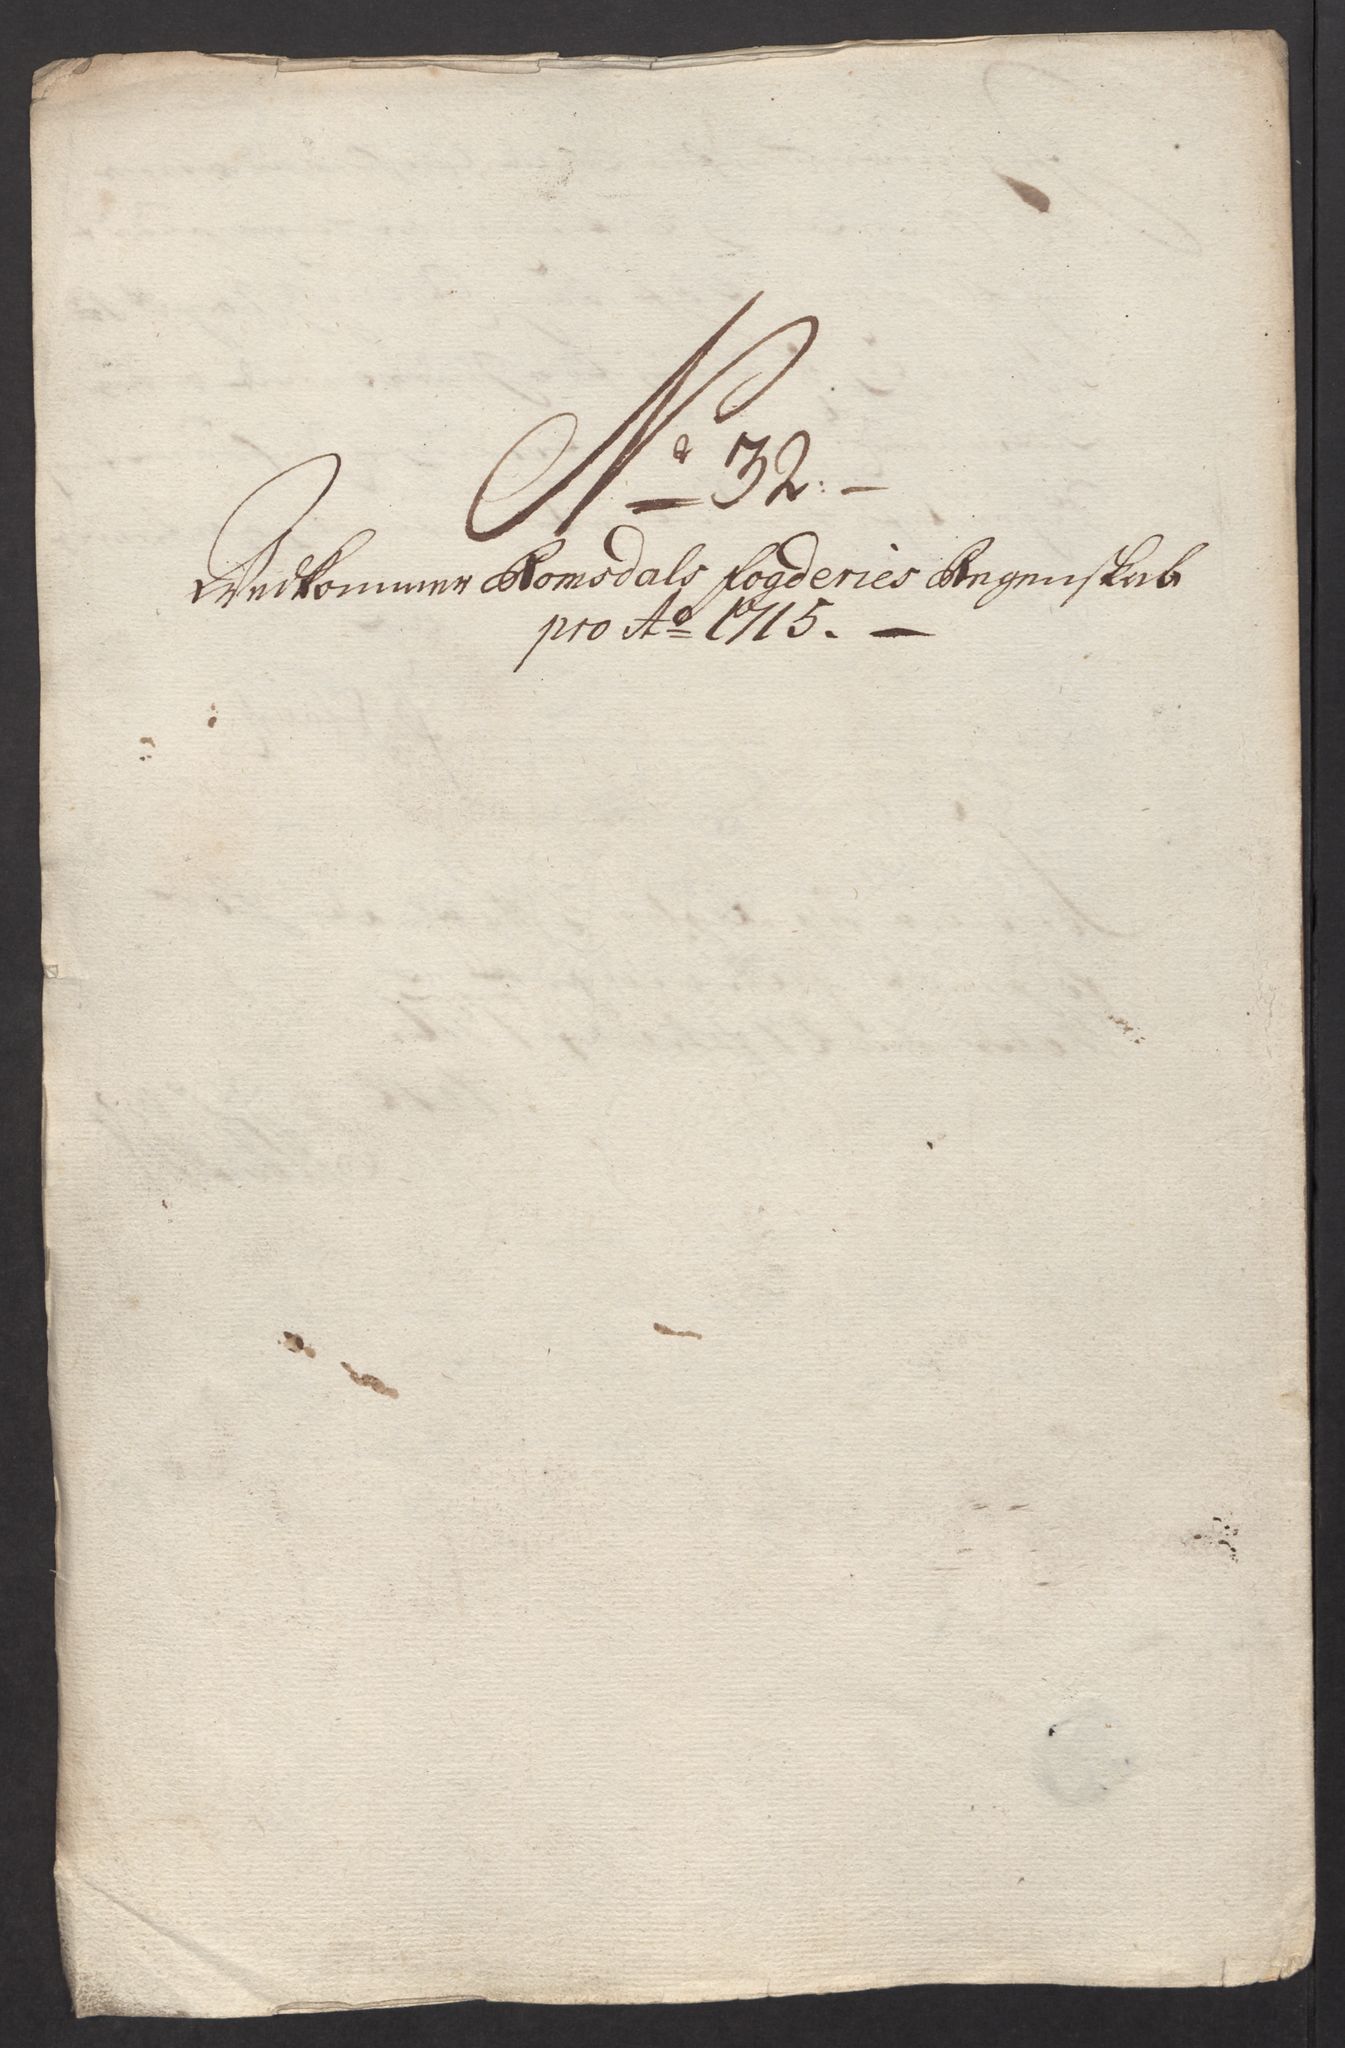 No 32. —
Vedkommer Romsdals fogderies Regenskab
pro Ao 1715. —